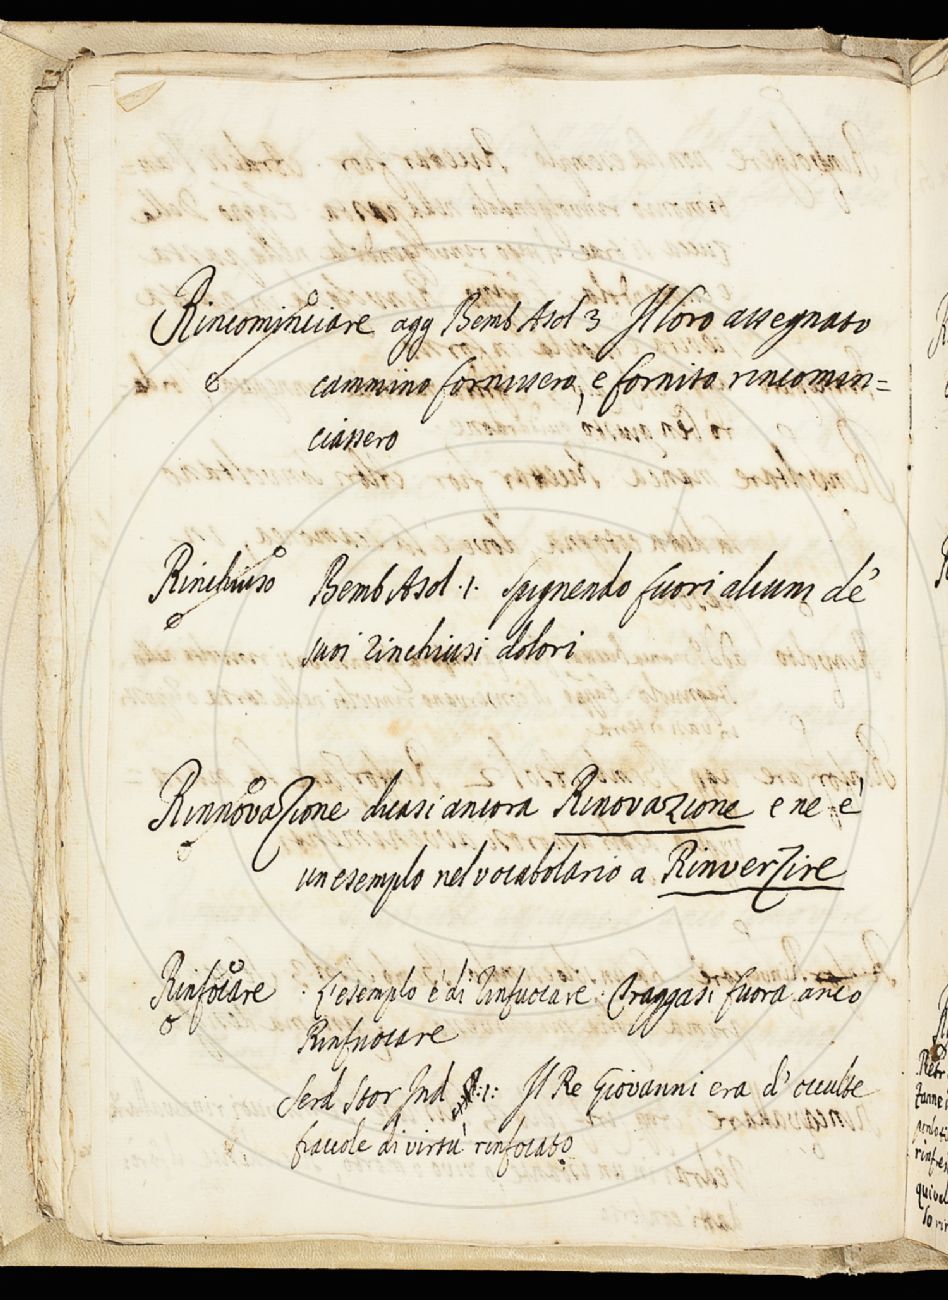 Rincominciare agg Bemb Asol 3 Il loro assegnato
cammino fornissero, e fornito rincomin=
ciassero
Rinchiuso Bemb Asol .1. spignendo fuori alcuni de'
suoi rinchiusi dolori
RinnovaZione dicasi ancora Rinovazione e ne è
un esempio nel vocabolario a RinverZire
Rinfocare . L'esempio è di Rinfuocare. Traggasi fuora anco
Rinfuocare
Serd Stor Ind .1: Il Re Giovanni era d' occulte
fiaccole di virtù rinfocato